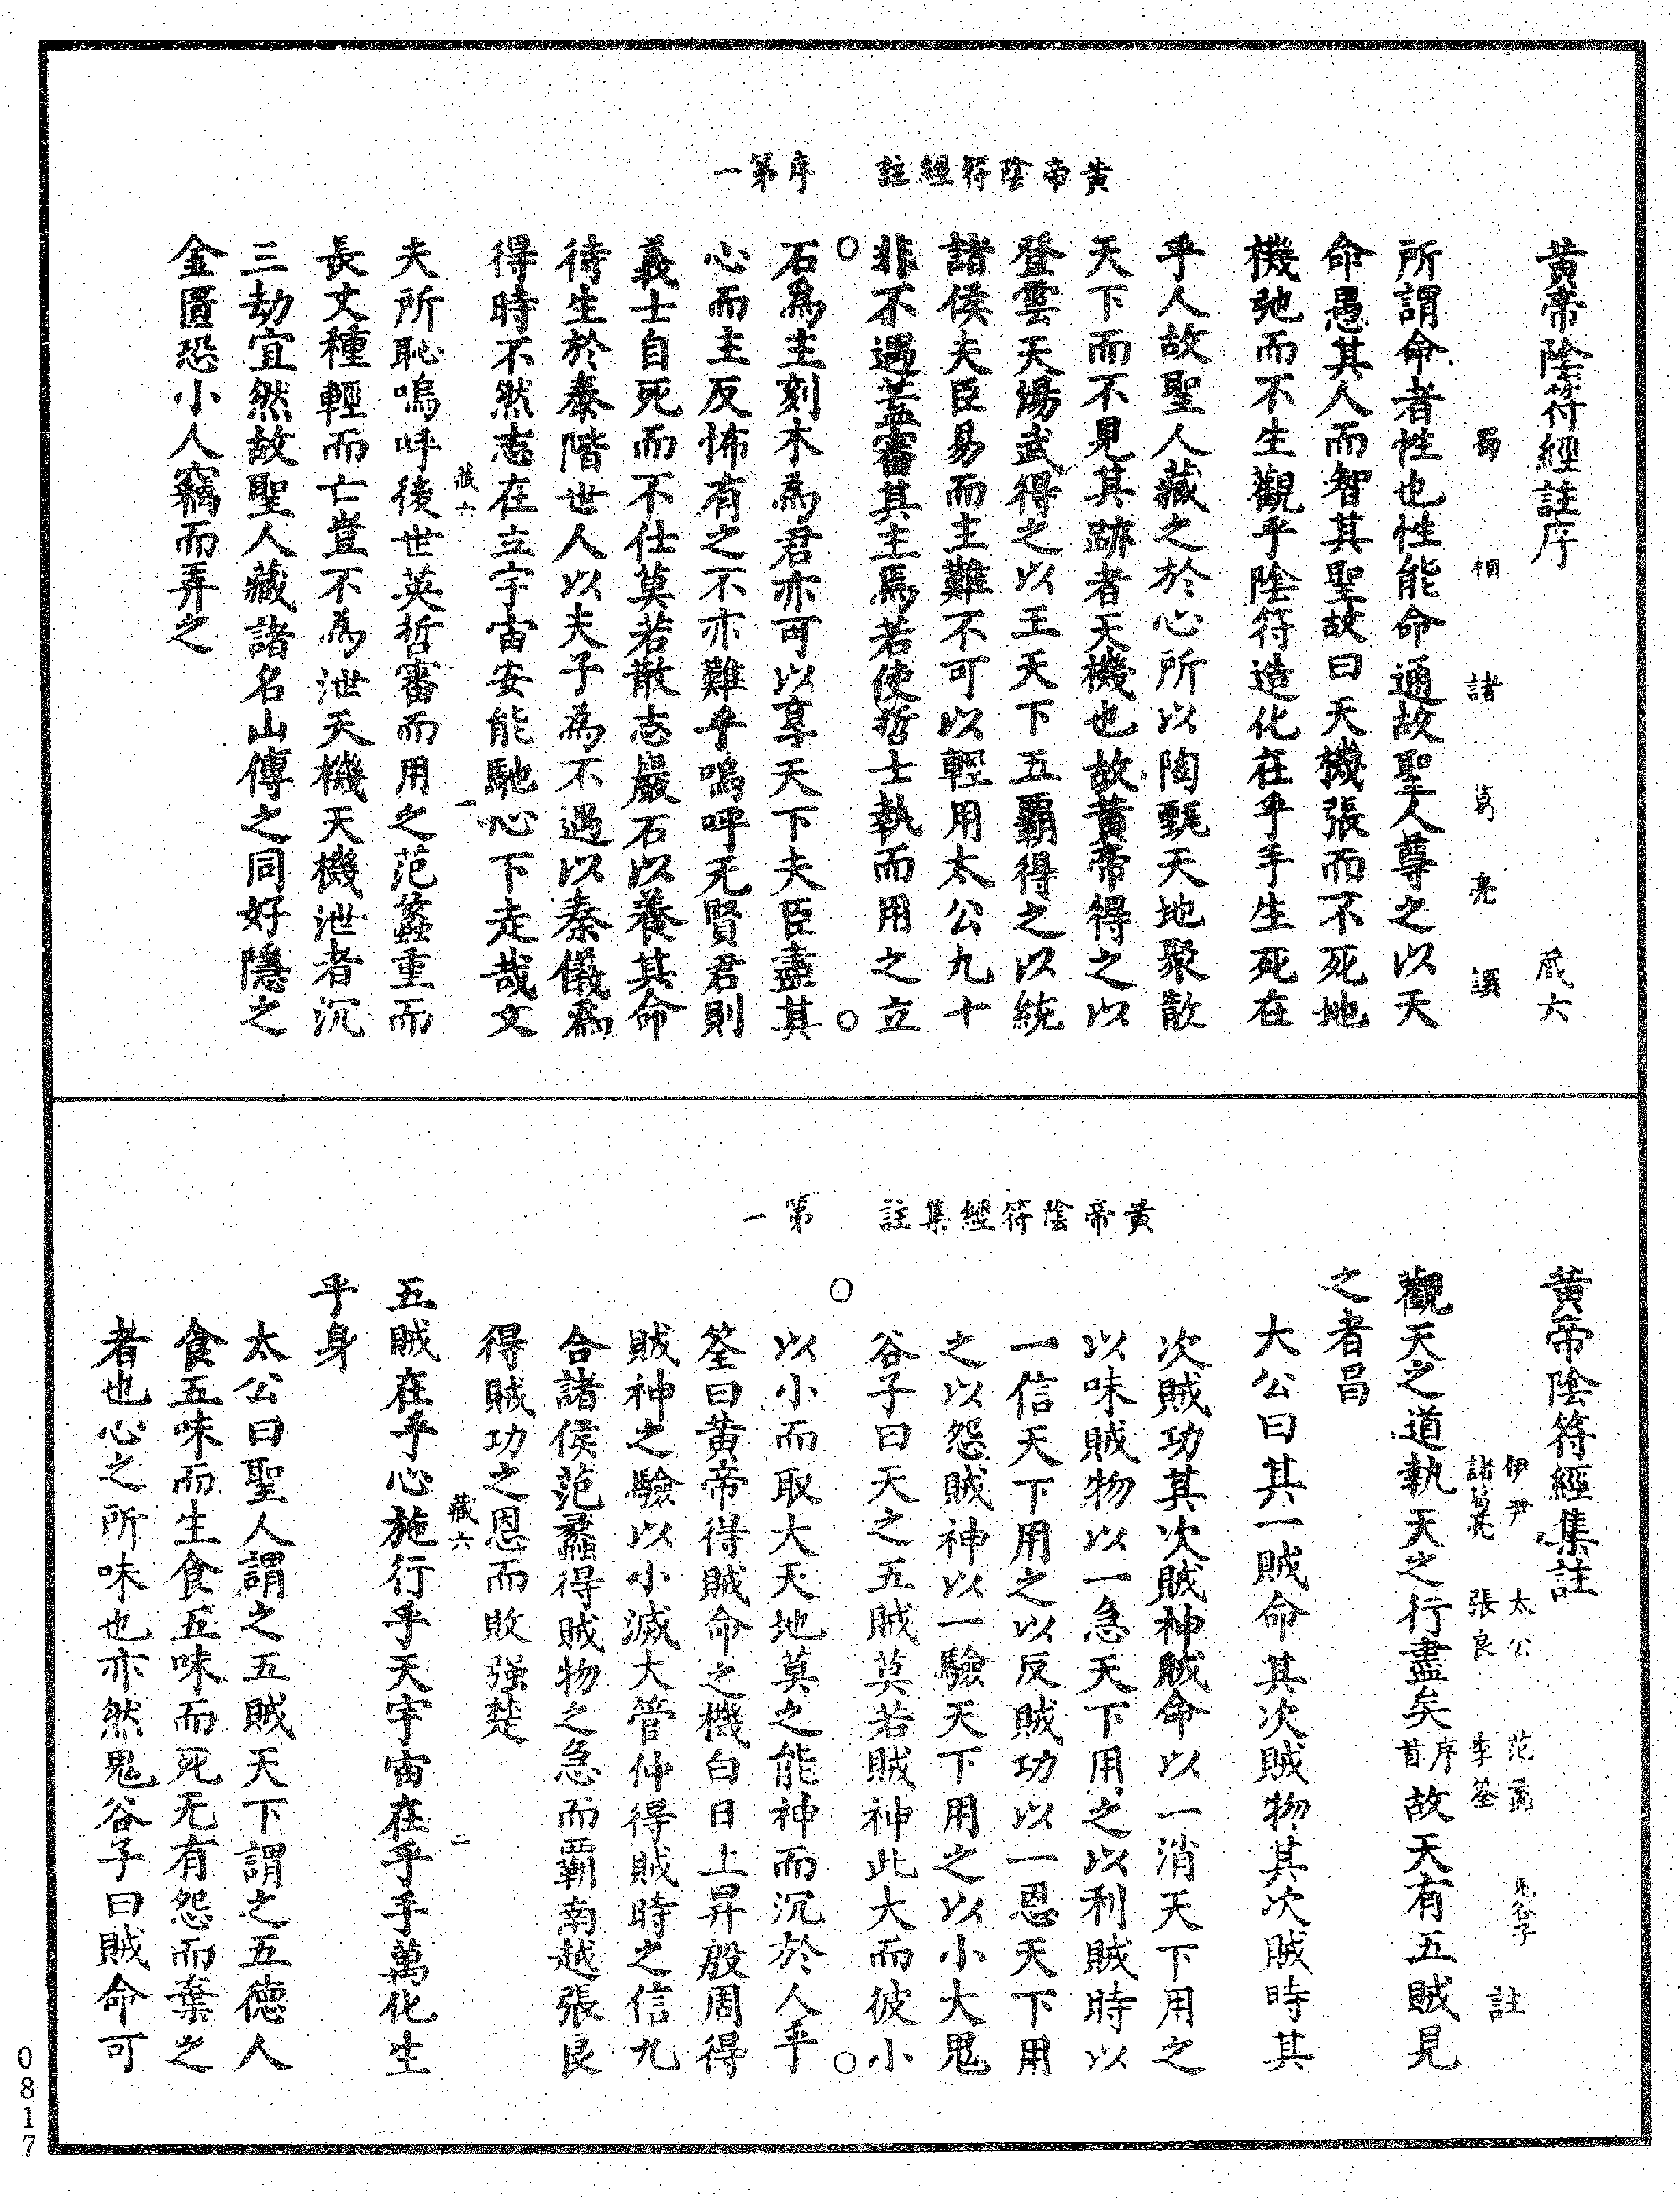 黃帝陰符經註　序第一
黃帝陰符經註序　　藏六
蜀相諸葛亮譔
所謂命者性也性能命通故聖人尊之以天
命愚其人而智其聖故曰天機張而不死地
機弛而不生觀乎陰符造化在乎手生死在
乎人故聖人藏之於心所以陶甄天地聚散
天下而不見其跡者天機也故黃帝得之以
登雲天湯武得之以王天下五覇得之以統
諸侯夫臣易而主難不可以輕用太公九十
非不遇蓋審其主焉若使哲士執而用之立
石為主刻木為君亦可以享天下夫臣盡其
心而主反怖有之不亦難乎嗚呼无賢君則
義士自死而不仕莫若散志巖石以養其命
待生於泰階世人以夫子為不遇以秦儀為
得時不然志在立宇宙安能馳心下走哉文
藏六　一
夫所恥嗚呼後世英哲審而用之范蠡重而
長文種輕而亡豈不為泄天機天機泄者沉
三劫宜然故聖人藏諸名山傳之同好隱之
金匱恐小人竊而弄之
黃帝陰符經集註　第一
黃帝陰符經集註
伊尹　太公　范蠡　鬼谷子
諸葛亮　張良　李筌　註
觀天之道執天之行盡矣序首故天有五賊見
之者昌
太公曰其一賊命其次賊物其次賊時其
次賊功其次賊神賊命以一消天下用之
以味賊物以一急天下用之以利賊時以
一信天下用之以反賊功以一恩天下用
之以怨賊神以一驗天下用之以小大鬼
谷子曰天之五賊莫若賊神此大而彼小
以小而取大天地莫之能神而沉於人乎
筌曰黃帝得賊命之機白日上昇殷周得
賊神之驗以小滅大管仲得賊時之信九
合諸侯范蠡得賊物之急而覇南越張良
得賊功之恩而敗强楚
藏六　二
五賊在乎心施行乎天宇宙在乎手萬化生
乎身
太公曰聖人謂之五賊天下謂之五德人
食五味而生食五味而死无有怨而棄之
者也心之所味也亦然鬼谷子曰賊命可
0817